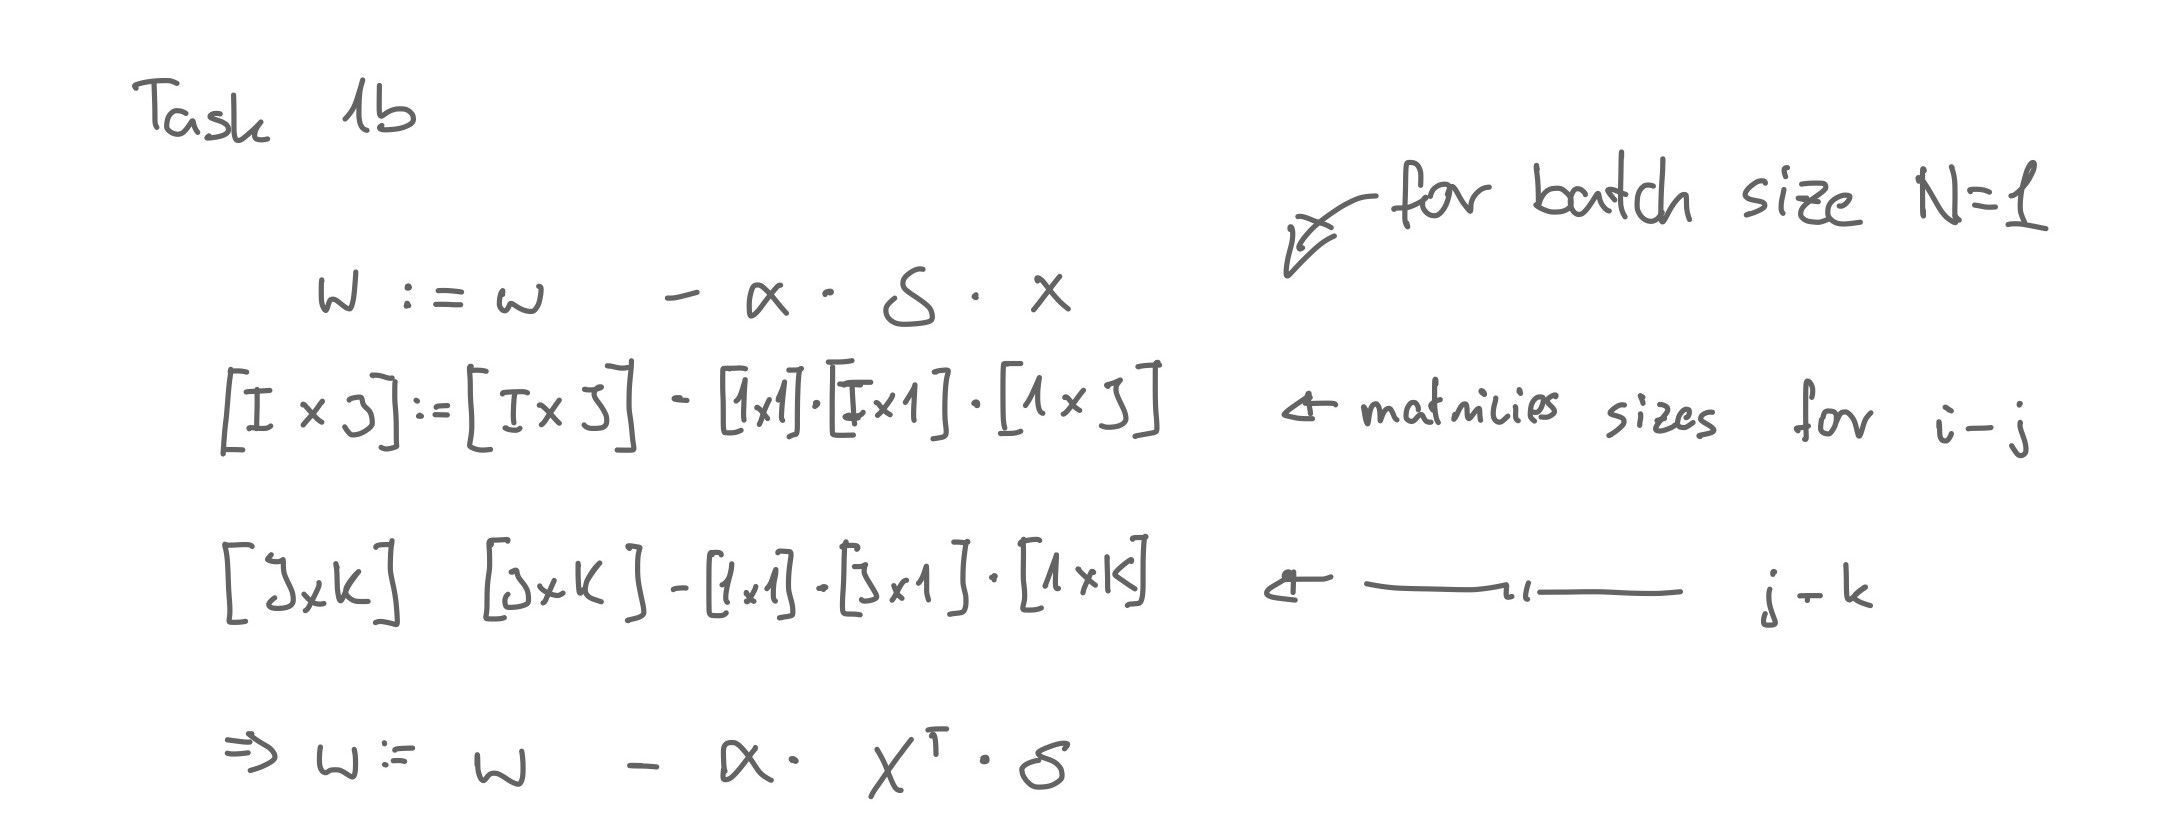 Task 1b
for batch size N=1
w := w - α · δ · x
[I x J] := [I x J] - [1x1] · [I x 1] · [1 x J] ← matricies sizes for i-j
[J x K] [J x K] - [1x1] · [J x 1] · [1 x K] ← —"— j-k
⇒ w := w - α · X^T · δ